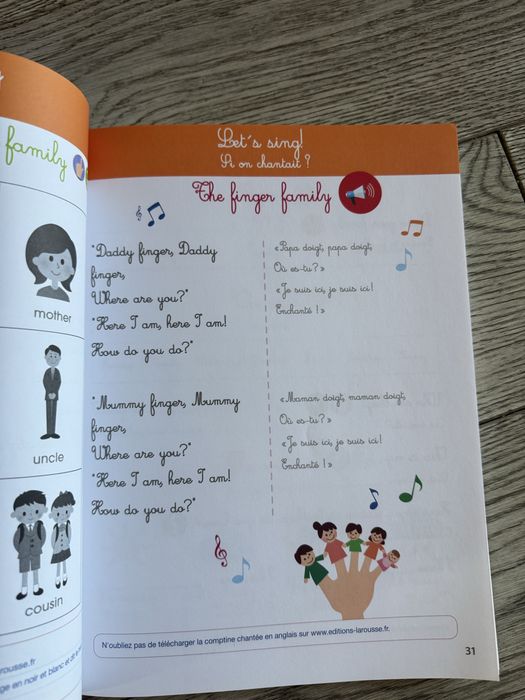 family
mother
uncle
cousin
arousse.fr
ge en noir et blanc et de
Let's sing!
Si on chantait ?
The finger family
"Daddy finger, Daddy
finger,
Where are you?"
"Here I am, here I am!
How do you do?"
"Mummy finger, Mummy
finger,
Where are you?"
"Here I am, here I am!
How do you do?"
«Papa doigt, papa doigt,
Où es-tu?»
«Je suis ici, je suis ici!
Enchanté !»
«Maman doigt, maman doigt,
Où es-tu?»
«Je suis ici, je suis ici!
Enchanté !»
N'oubliez pas de télécharger la comptine chantée en anglais sur www.editions-larousse.fr.
31